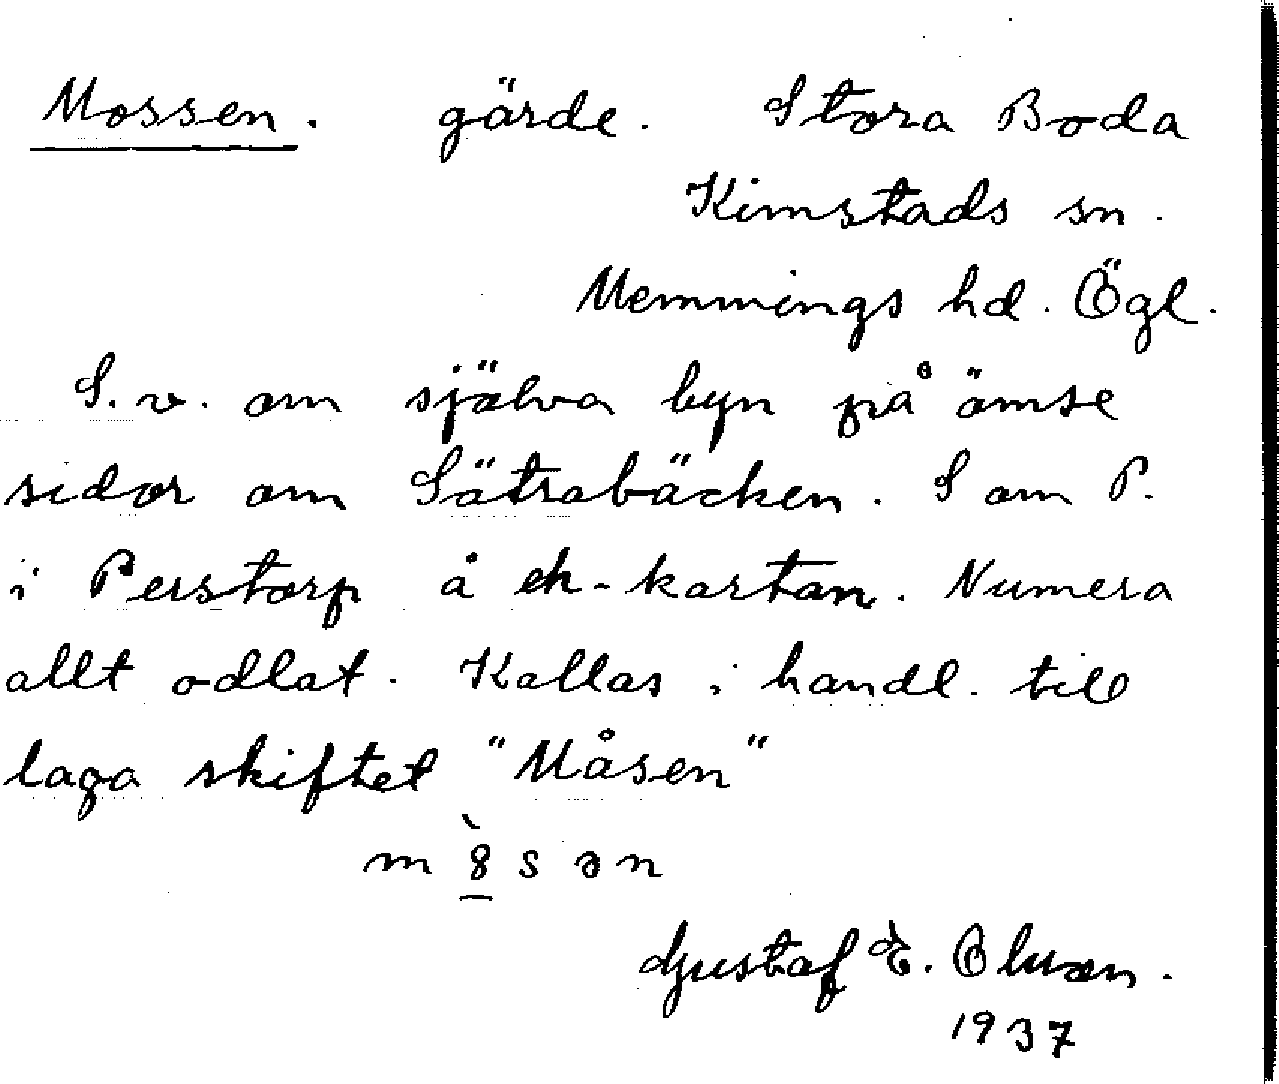 Mossen. gärde. Stora Boda
Kimstads sn.
Memmings hd. Ögl.
S.v. om själva byn på ömse
sidor om Sätrabäcken. S om P.
i Perstorp å ek-kartan. Numera
allt odlat. Kallas i handl. till
laga skiftet "Måsen"
m 8̲̀ s ə n
Gustaf E. Olsson.
1937